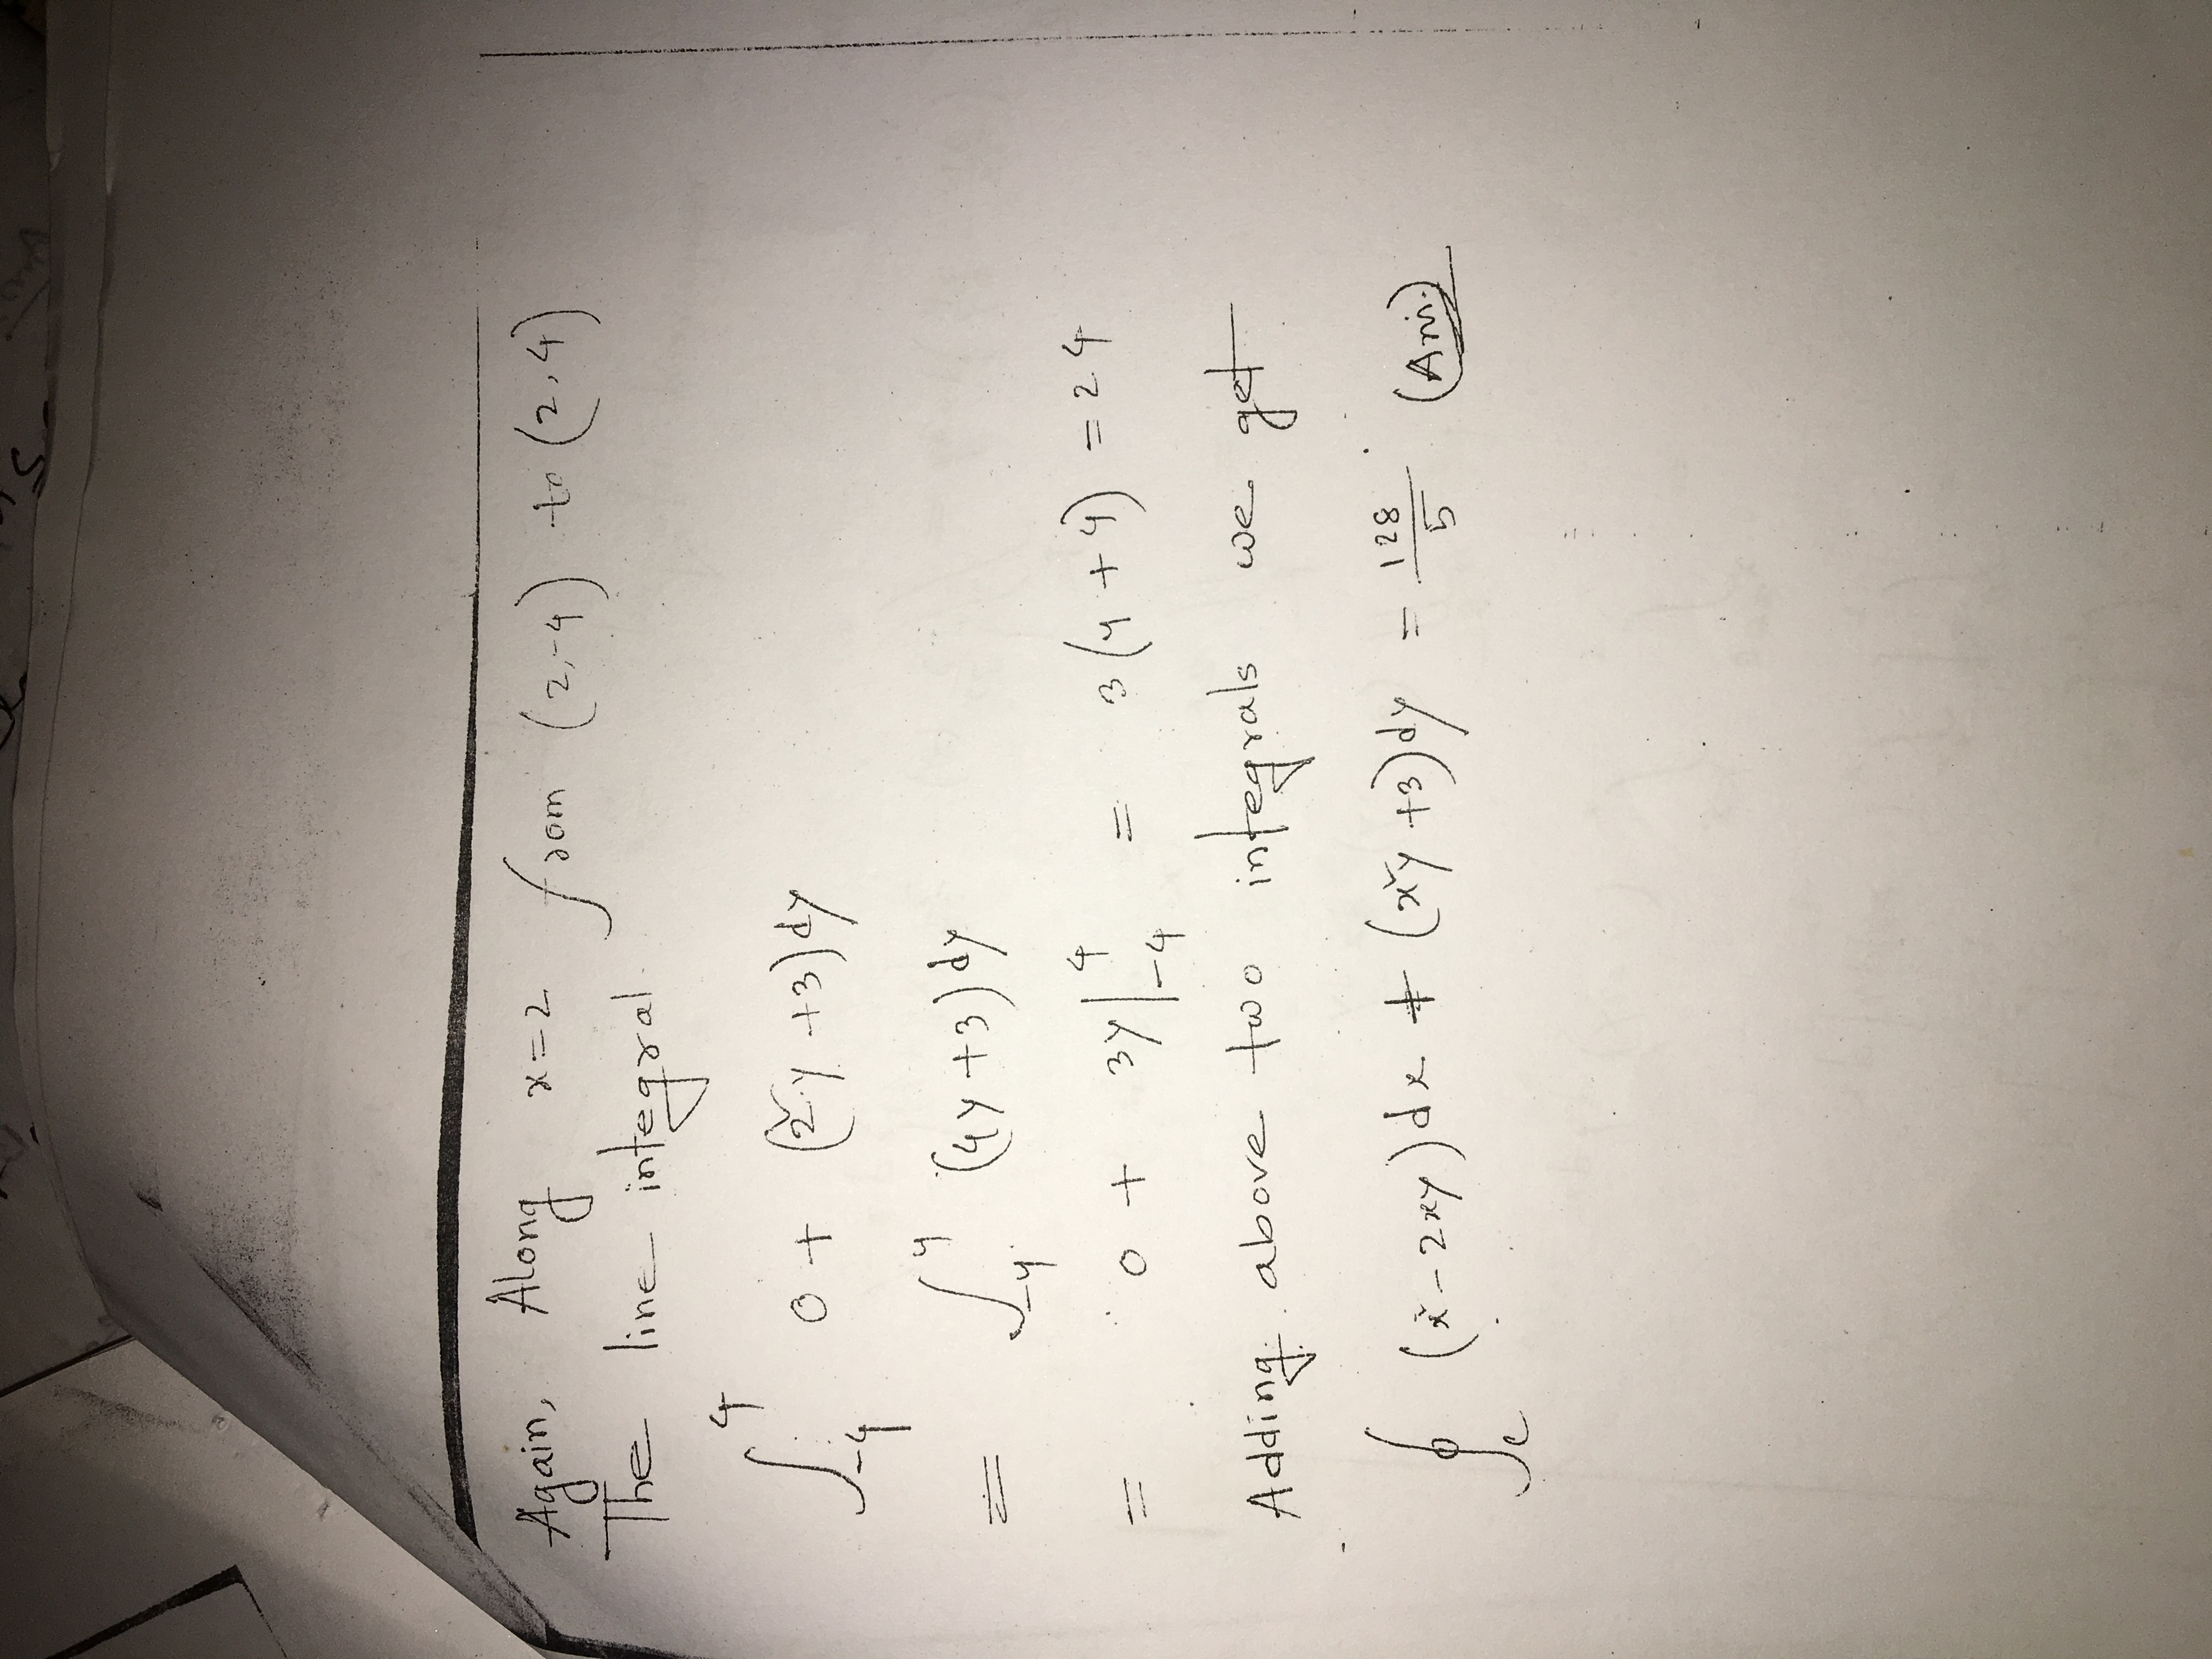 Again, Along x=2 from (2,-4) to (2,4)
The line integral.
∫₋₄⁴ 0 + (2²y +3)dy
= ∫₋₄⁴ (4y+3)dy
= 0 + 3y|₋₄⁴ = 3(4+4) = 24
Adding above two integrals we get
∮c (x²-2xy)dx + (x²y+3)dy = 128/5 (Ans.)